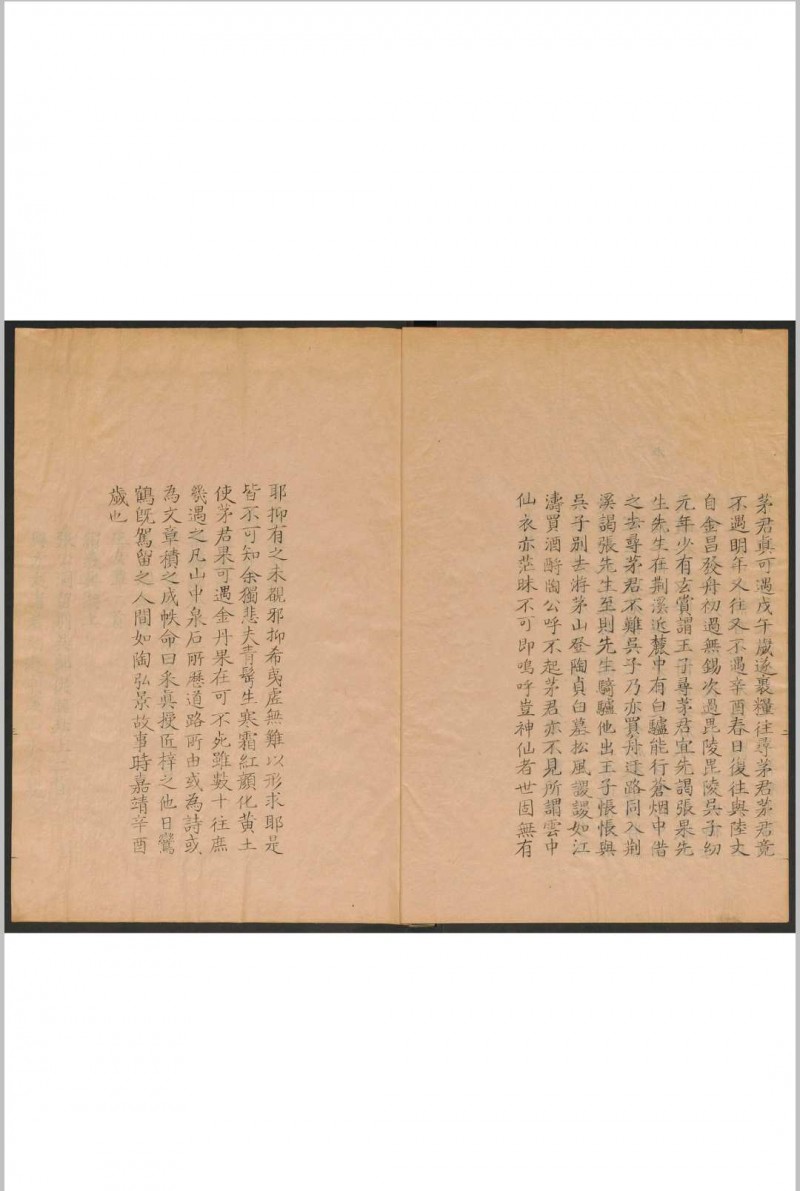 茅君真可遇戊午歲遂裹糧往尋茅君茅君竟
不遇明年又往又不遇辛酉春日復往與陸丈
自金昌發舟初過無錫次過毘陵毘陵吳子幼
元年少有玄賞謂王子尋茅君宜先謁張果先
生先生在荆溪近麓中有白驢能行蒼烟中借
之去尋茅君不難吳子乃亦買舟迂路同入荆
溪謁張先生至則先生騎驢他出王子悵悵與
吳子別去游茅山登陶貞白墓松風謖謖如江
濤買酒酹陶公呼不起茅君亦不見所謂雲中
仙衣亦茫昧不可即嗚呼豈神仙者世固無有
耶抑有之未覩邪抑希夷虚無難以形求耶是
皆不可知余獨悲夫青鬢生寒霜紅顏化黃土
使茅君果可遇金丹果在可不死雖數十往庶
幾遇之凡山中泉石所歷道路所由或為詩或
為文章積之成帙命曰采真授匠梓之他日鸞
鶴旣駕留之人間如陶弘景故事時嘉靖辛酉
歲也